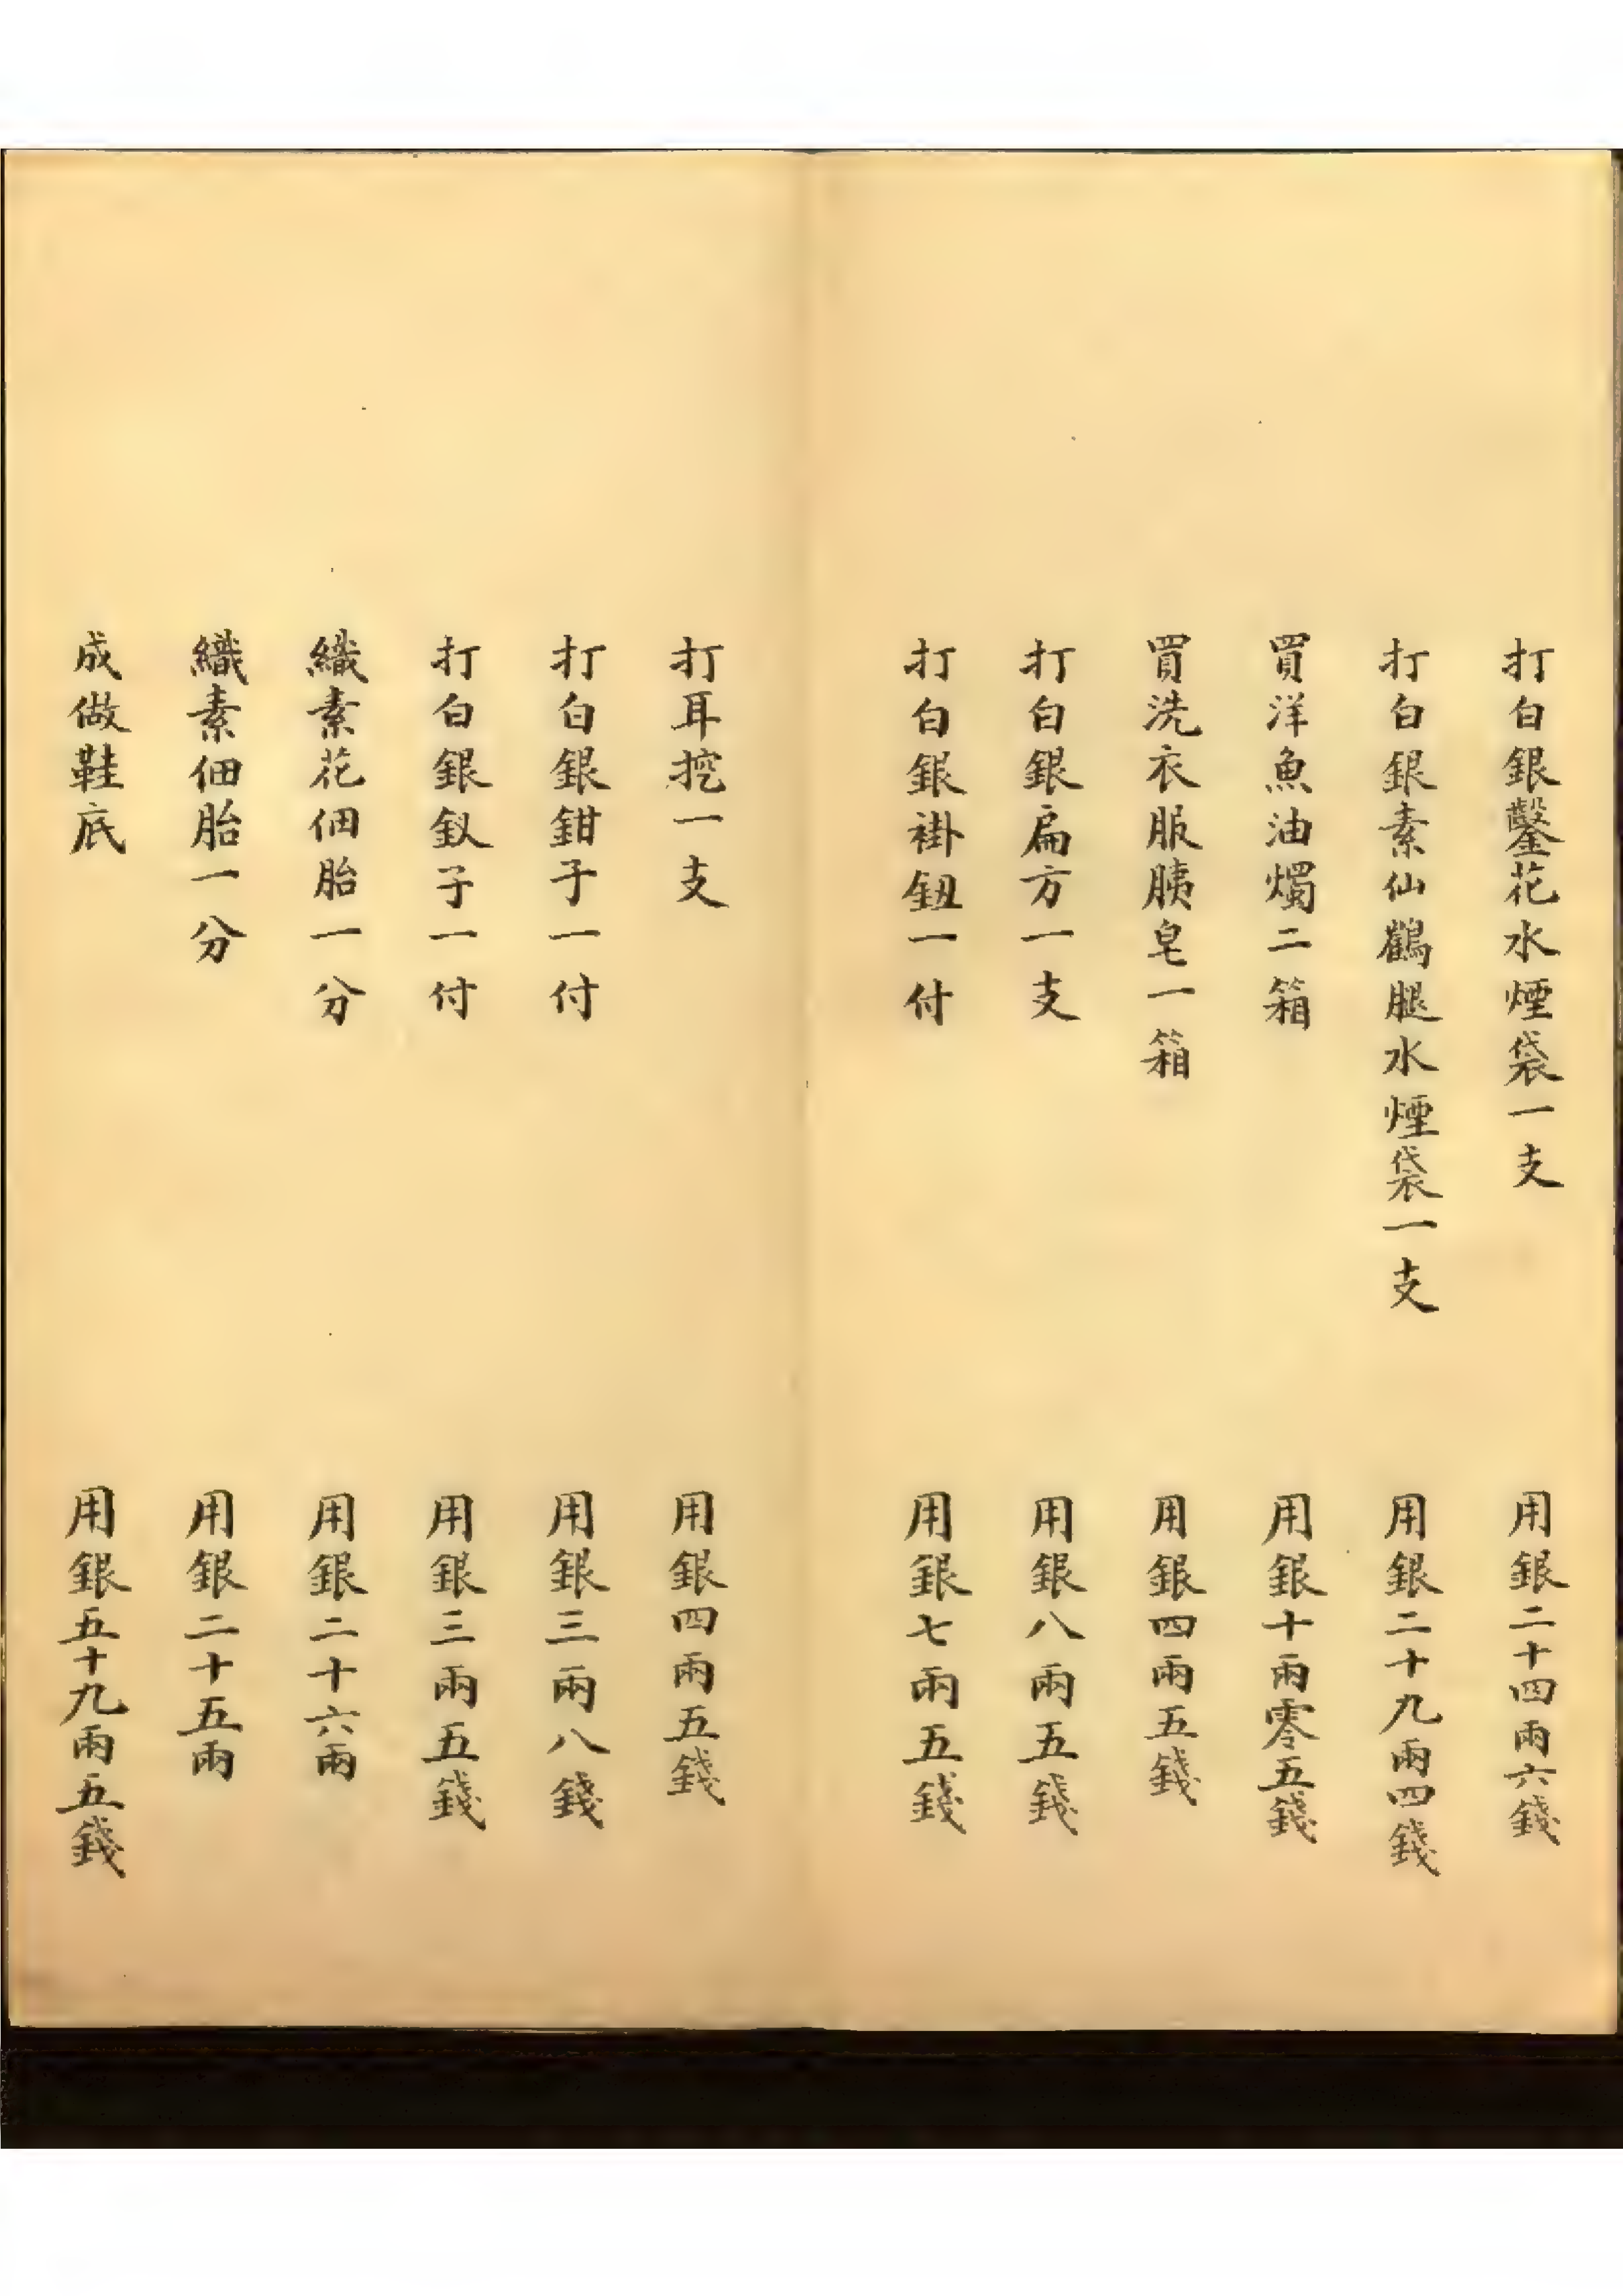 打白銀鏨花水煙袋一支 用銀二十四兩六錢
打白銀素仙鶴腿水煙袋一支 用銀二十九兩四錢
買洋魚油燭二箱 用銀十兩零五錢
買洗衣服胰皂一箱 用銀四兩五錢
打白銀扁方一支 用銀八兩五錢
打白銀褂鈕一付 用銀七兩五錢
打耳挖一支 用銀四兩五錢
打白銀鉗子一付 用銀三兩八錢
打白銀釵子一付 用銀三兩五錢
織素花佃胎一分 用銀二十六兩
織素佃胎一分 用銀二十五兩
成做鞋底 用銀五十九兩五錢